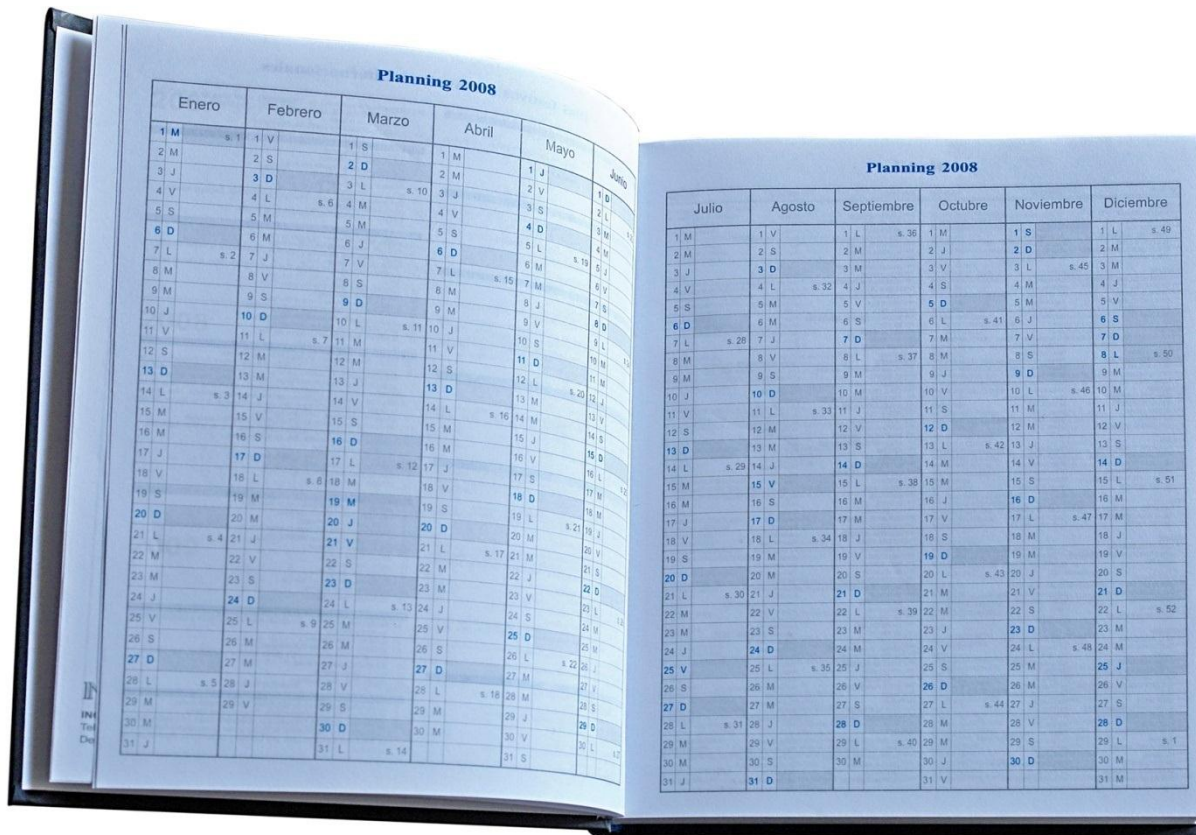 Planning 2008
Enero Febrero Marzo Abril Mayo Junio
1 M s. 1 1 V 1 S 1 M 1 J 1 D
2 M 2 S 2 D 2 M 2 V 2 L
3 J 3 D 3 L s. 10 3 J 3 S 3 M
4 V 4 L s. 6 4 M 4 V 4 D 4 M
5 S 5 M 5 M 5 S 5 L s. 19 5 J
6 D 6 M 6 J 6 D 6 M 6 V
7 L s. 2 7 J 7 V 7 L s. 15 7 M 7 S
8 M 8 V 8 S 8 M 8 J 8 D
9 M 9 S 9 D 9 M 9 V 9 L
10 J 10 D 10 L s. 11 10 J 10 S 10 M
11 V 11 L s. 7 11 M 11 V 11 D 11 M
12 S 12 M 12 M 12 S 12 L s. 20 12 J
13 D 13 M 13 J 13 D 13 M 13 V
14 L s. 3 14 J 14 V 14 L s. 16 14 M 14 S
15 M 15 V 15 S 15 M 15 J 15 D
16 M 16 S 16 D 16 M 16 V 16 L
17 J 17 D 17 L s. 12 17 J 17 S 17 M
18 V 18 L s. 8 18 M 18 V 18 D 18 M
19 S 19 M 19 M 19 S 19 L s. 21 19 J
20 D 20 M 20 J 20 D 20 M 20 V
21 L s. 4 21 J 21 V 21 L s. 17 21 M 21 S
22 M 22 V 22 S 22 M 22 J 22 D
23 M 23 S 23 D 23 M 23 V 23 L
24 J 24 D 24 L s. 13 24 J 24 S 24 M
25 V 25 L s. 9 25 M 25 V 25 D 25 M
26 S 26 M 26 M 26 S 26 L s. 22 26 J
27 D 27 M 27 J 27 D 27 M 27 V
28 L s. 5 28 J 28 V 28 L s. 18 28 M 28 S
29 M 29 V 29 S 29 M 29 J 29 D
30 M 30 D 30 M 30 V 30 L
31 J 31 L s. 14 31 S
Planning 2008
Julio Agosto Septiembre Octubre Noviembre Diciembre
1 M 1 V 1 L s. 36 1 M 1 S 1 L s. 49
2 M 2 S 2 M 2 J 2 D 2 M
3 J 3 D 3 M 3 V 3 L s. 45 3 M
4 V 4 L s. 32 4 J 4 S 4 M 4 J
5 S 5 M 5 V 5 D 5 M 5 V
6 D 6 M 6 S 6 L s. 41 6 J 6 S
7 L s. 28 7 J 7 D 7 M 7 V 7 D
8 M 8 V 8 L s. 37 8 M 8 S 8 L s. 50
9 M 9 S 9 M 9 J 9 D 9 M
10 J 10 D 10 M 10 V 10 L s. 46 10 M
11 V 11 L s. 33 11 J 11 S 11 M 11 J
12 S 12 M 12 V 12 D 12 M 12 V
13 D 13 M 13 S 13 L s. 42 13 J 13 S
14 L s. 29 14 J 14 D 14 M 14 V 14 D
15 M 15 V 15 L s. 38 15 M 15 S 15 L s. 51
16 M 16 S 16 M 16 J 16 D 16 M
17 J 17 D 17 M 17 V 17 L s. 47 17 M
18 V 18 L s. 34 18 J 18 S 18 M 18 J
19 S 19 M 19 V 19 D 19 M 19 V
20 D 20 M 20 S 20 L s. 43 20 J 20 S
21 L s. 30 21 J 21 D 21 M 21 V 21 D
22 M 22 V 22 L s. 39 22 M 22 S 22 L s. 52
23 M 23 S 23 M 23 J 23 D 23 M
24 J 24 D 24 M 24 V 24 L s. 48 24 M
25 V 25 L s. 35 25 J 25 S 25 M 25 J
26 S 26 M 26 V 26 D 26 M 26 V
27 D 27 M 27 S 27 L s. 44 27 J 27 S
28 L s. 31 28 J 28 D 28 M 28 V 28 D
29 M 29 V 29 L s. 40 29 M 29 S 29 L s. 1
30 M 30 S 30 M 30 J 30 D 30 M
31 J 31 D 31 V 31 M